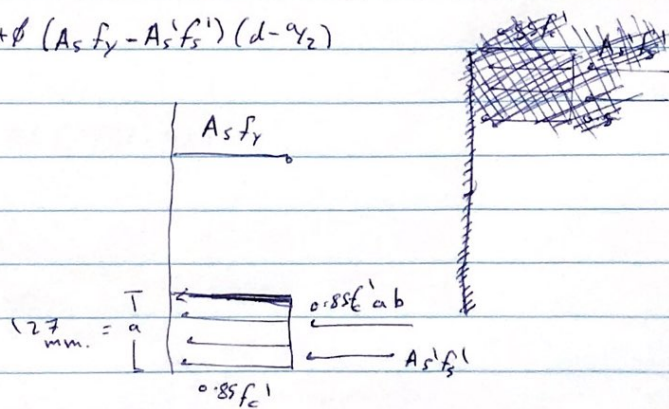 +φ (As fy - As'fs') (d - a/2)
As fy
0.85fc'ab
127 = a
mm.
As'fs'
0.85fc'